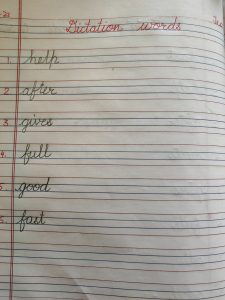 Dictation words
1. help
2. after
3. gives
4. full
5. good
6. fast